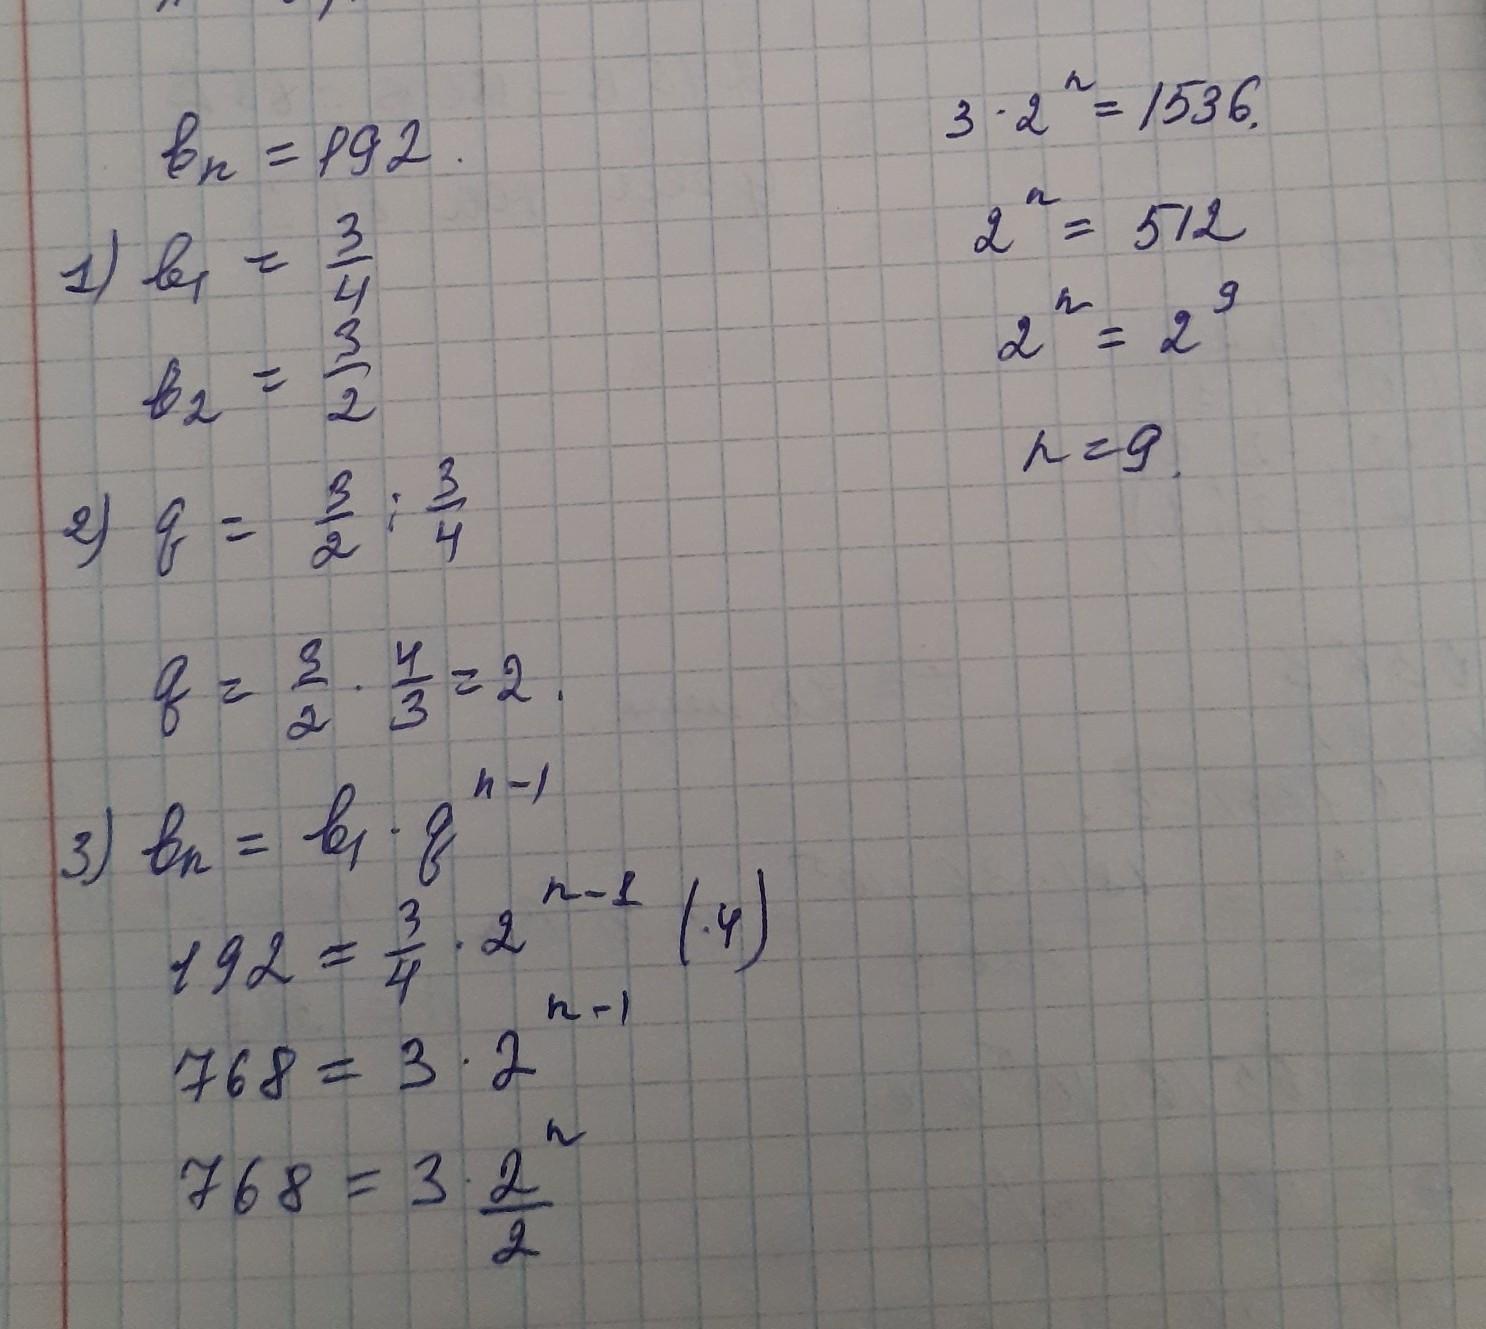 bₙ = 192.
1) b₁ = 3/4
b₂ = 3/2
2) q = 3/2 : 3/4
q = 3/2 · 4/3 = 2.
3) bₙ = b₁ · qⁿ⁻¹
192 = 3/4 · 2ⁿ⁻¹ (·4)
768 = 3 · 2ⁿ⁻¹
768 = 3 · 2ⁿ/2
3 · 2ⁿ = 1536.
2ⁿ = 512
2ⁿ = 2⁹
n = 9.